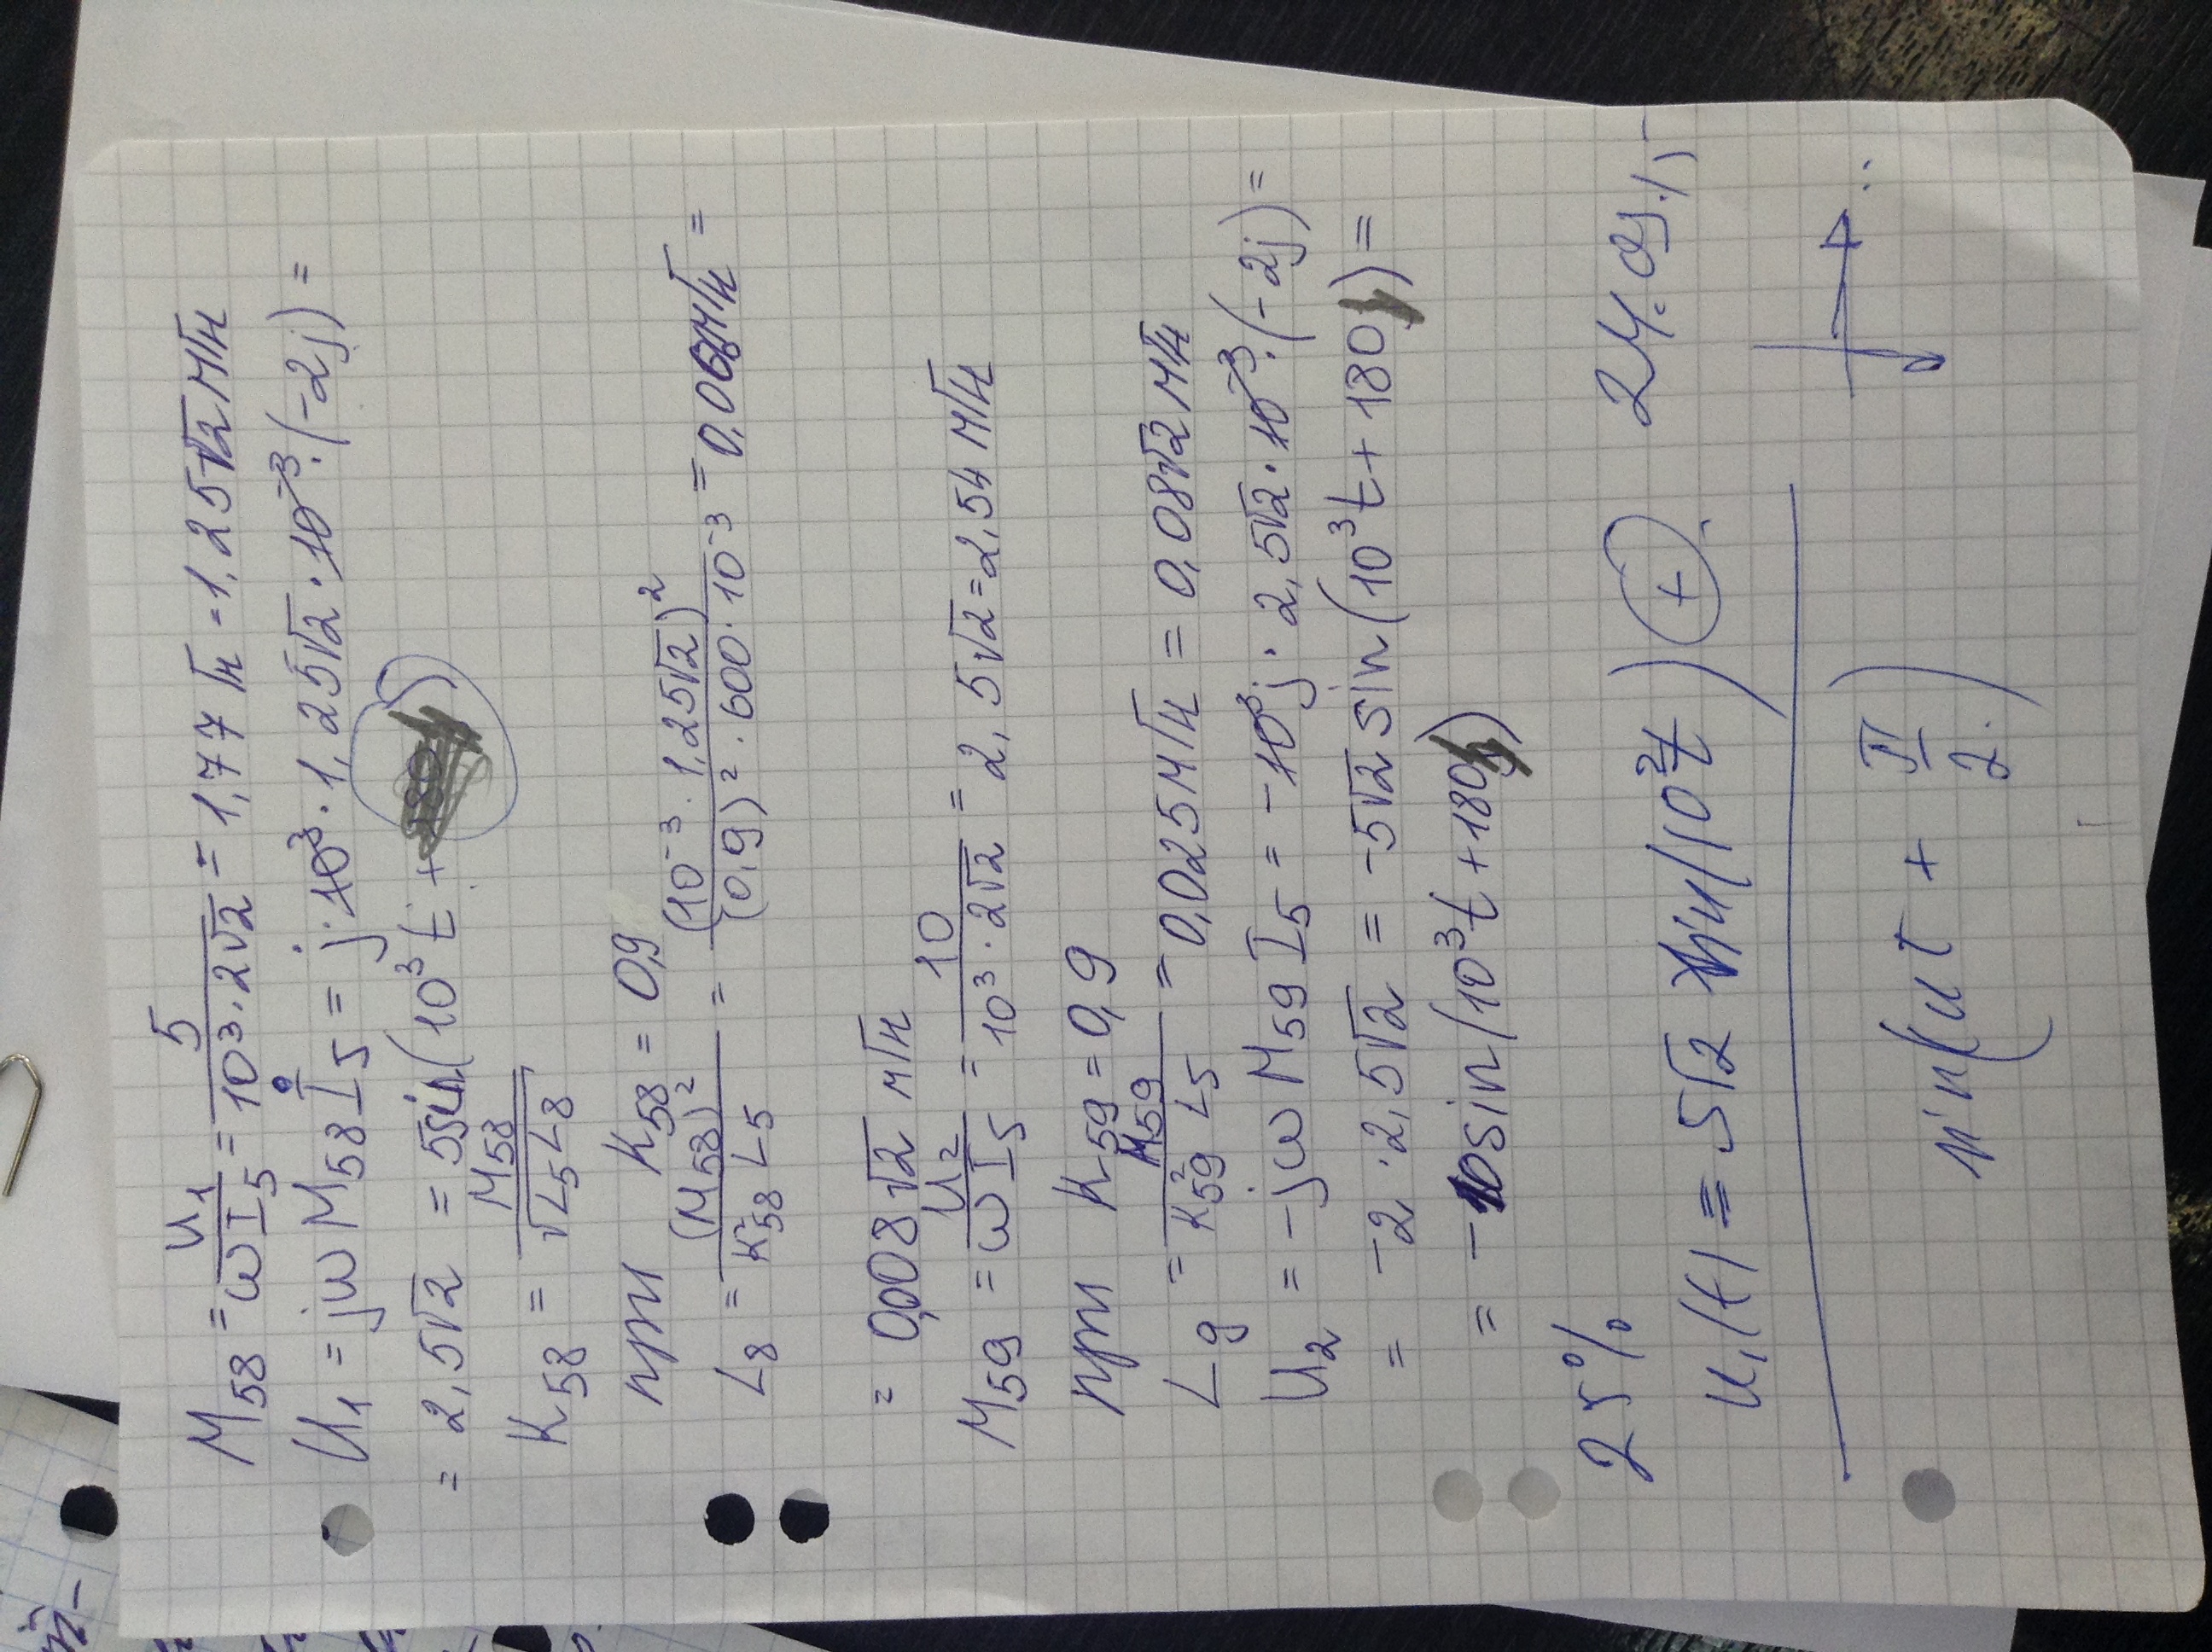 M₅₈ = U₁/(ωI₅) = 5/(10³·2√2) = 1,77 Гн = 1,25√2 мГн
U₁ = jωM₅₈ I₅ = j·10³·1,25√2·10⁻³·(-2j) =
= 2,5√2 = 5sin(10³t +
K₅₈ = M₅₈/√(L₅L₈)
при K₅₈ = 0,9
L₈ = (M₅₈)²/(K²₅₈ L₅) = (10⁻³·1,25√2)²/((0,9)²·600·10⁻³) = 0,006мГн =
= 0,008√2 мГн
M₅₉ = U₂/(ωI₅) = 10/(10³·2√2) = 2,5√2 = 2,54 мГн
при K₅₉ = 0,9
L₉ = M₅₉/(K²₅₉ L₅) = 0,025мГн = 0,08√2 мГн
U₂ = -jωM₅₉ I₅ = -10³j·2,5√2·10⁻³·(-2j) =
= -2·2,5√2 = -5√2 sin(10³t + 180) =
= -10sin(10³t + 180)
25%
24.09.
U₁(t) = 5√2 sin(10³t) (+)
sin(ωt + π/2)